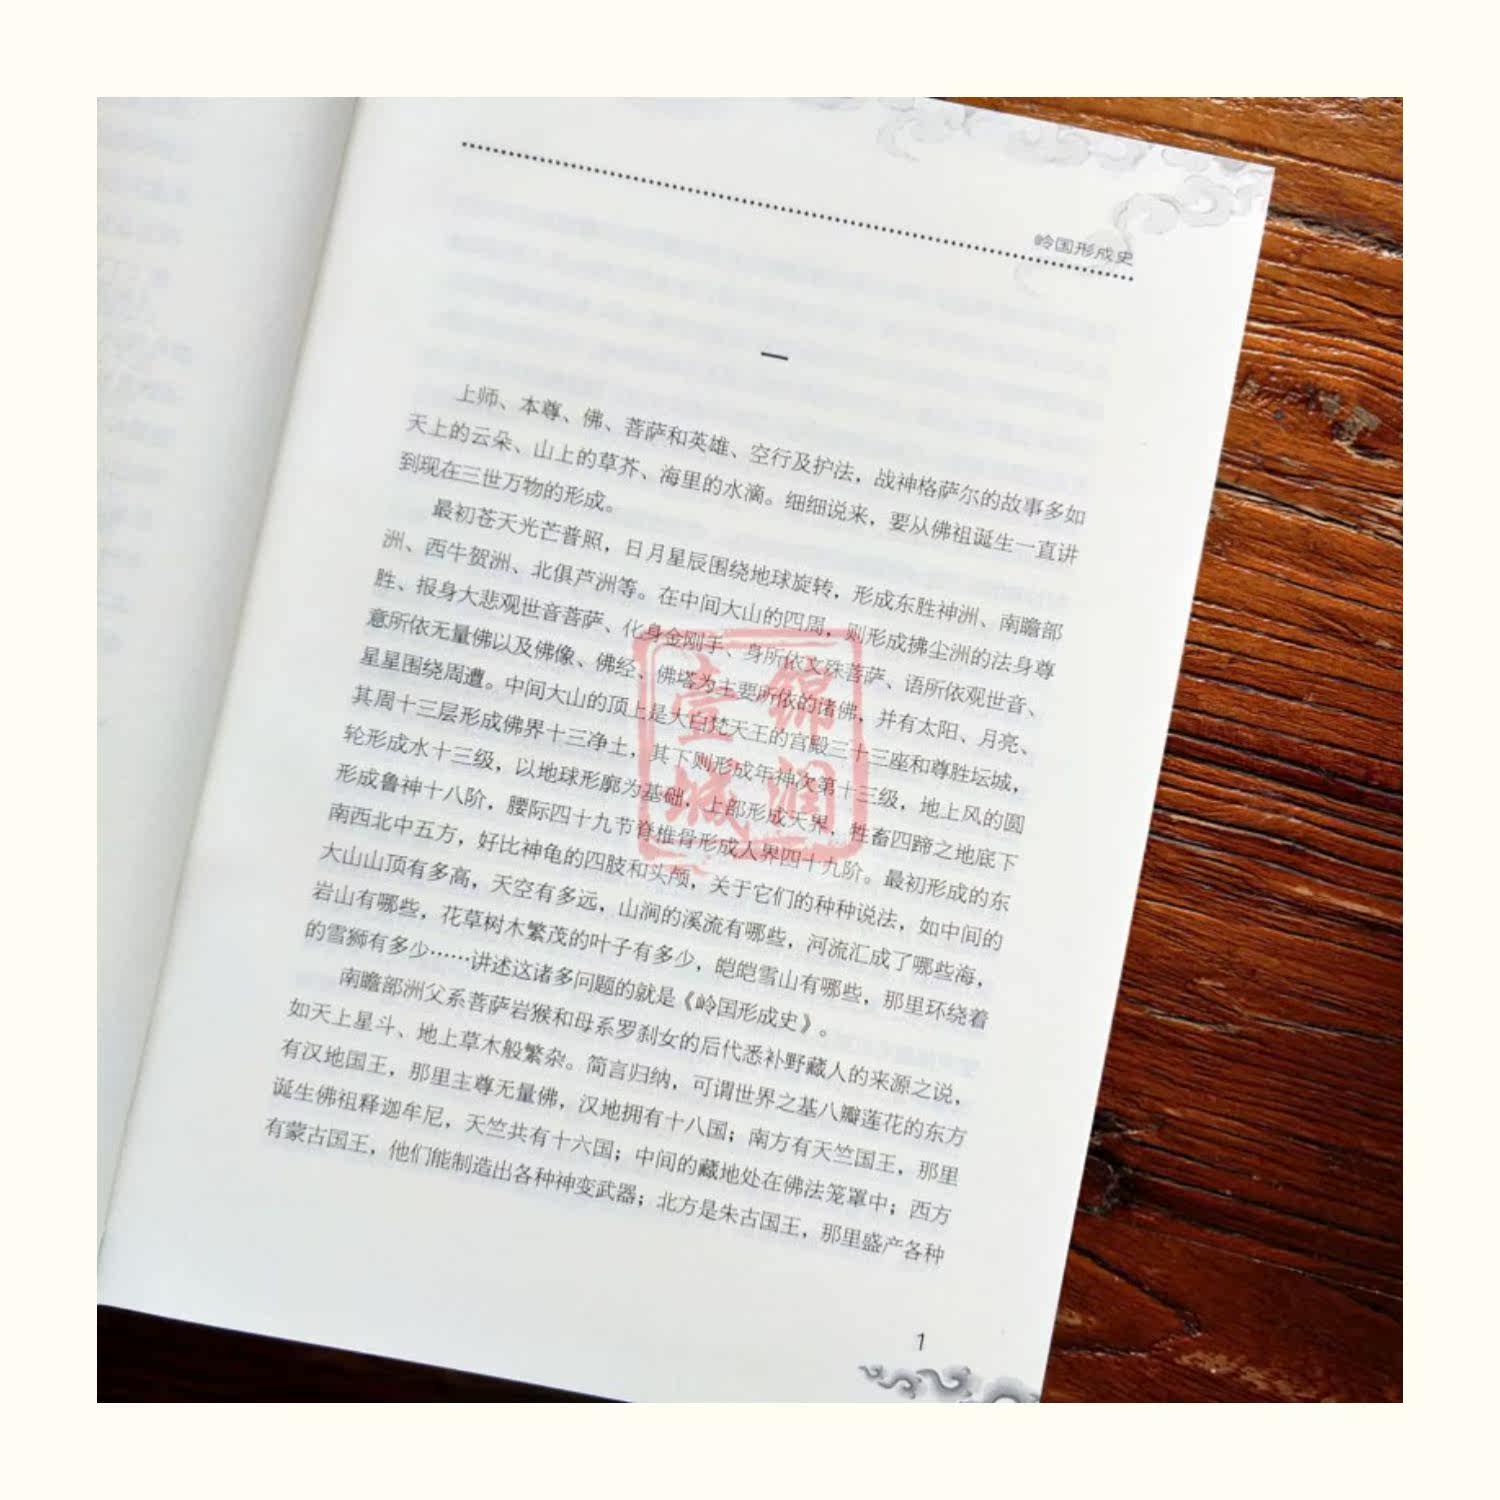 岭国形成史
一
上师、本尊、佛、菩萨和英雄、空行及护法，战神格萨尔的故事多如
天上的云朵、山上的草芥、海里的水滴。细细说来，要从佛祖诞生一直讲
到现在三世万物的形成。
最初苍天光芒普照，日月星辰围绕地球旋转，形成东胜神洲、南瞻部
洲、西牛贺洲、北俱芦洲等。在中间大山的四周，则形成拂尘洲的法身尊
胜、报身大悲观世音菩萨、化身金刚手、身所依文殊菩萨、语所依观世音、
意所依无量佛以及佛像、佛经、佛塔为主要所依的诸佛，并有太阳、月亮、
星星围绕周遭。中间大山的顶上是大白梵天王的宫殿三十三座和尊胜坛城，
其周十三层形成佛界十三净土，其下则形成年神次第十三级，地上风的圆
轮形成水十三级，以地球形廓为基础，上部形成天界，牲畜四蹄之地底下
形成鲁神十八阶，腰际四十九节脊椎骨形成人界四十九阶。最初形成的东
南西北中五方，好比神龟的四肢和头颅，关于它们的种种说法，如中间的
大山山顶有多高，天空有多远，山涧的溪流有哪些，河流汇成了哪些海，
岩山有哪些，花草树木繁茂的叶子有多少，皑皑雪山有哪些，那里环绕着
的雪狮有多少……讲述这诸多问题的就是《岭国形成史》。
南瞻部洲父系菩萨岩猴和母系罗刹女的后代悉补野藏人的来源之说，
如天上星斗、地上草木般繁杂。简言归纳，可谓世界之基八瓣莲花的东方
有汉地国王，那里主尊无量佛，汉地拥有十八国；南方有天竺国王，那里
诞生佛祖释迦牟尼，天竺共有十六国；中间的藏地处在佛法笼罩中；西方
有蒙古国王，他们能制造出各种神变武器；北方是朱古国王，那里盛产各种
1
锦润
壹城